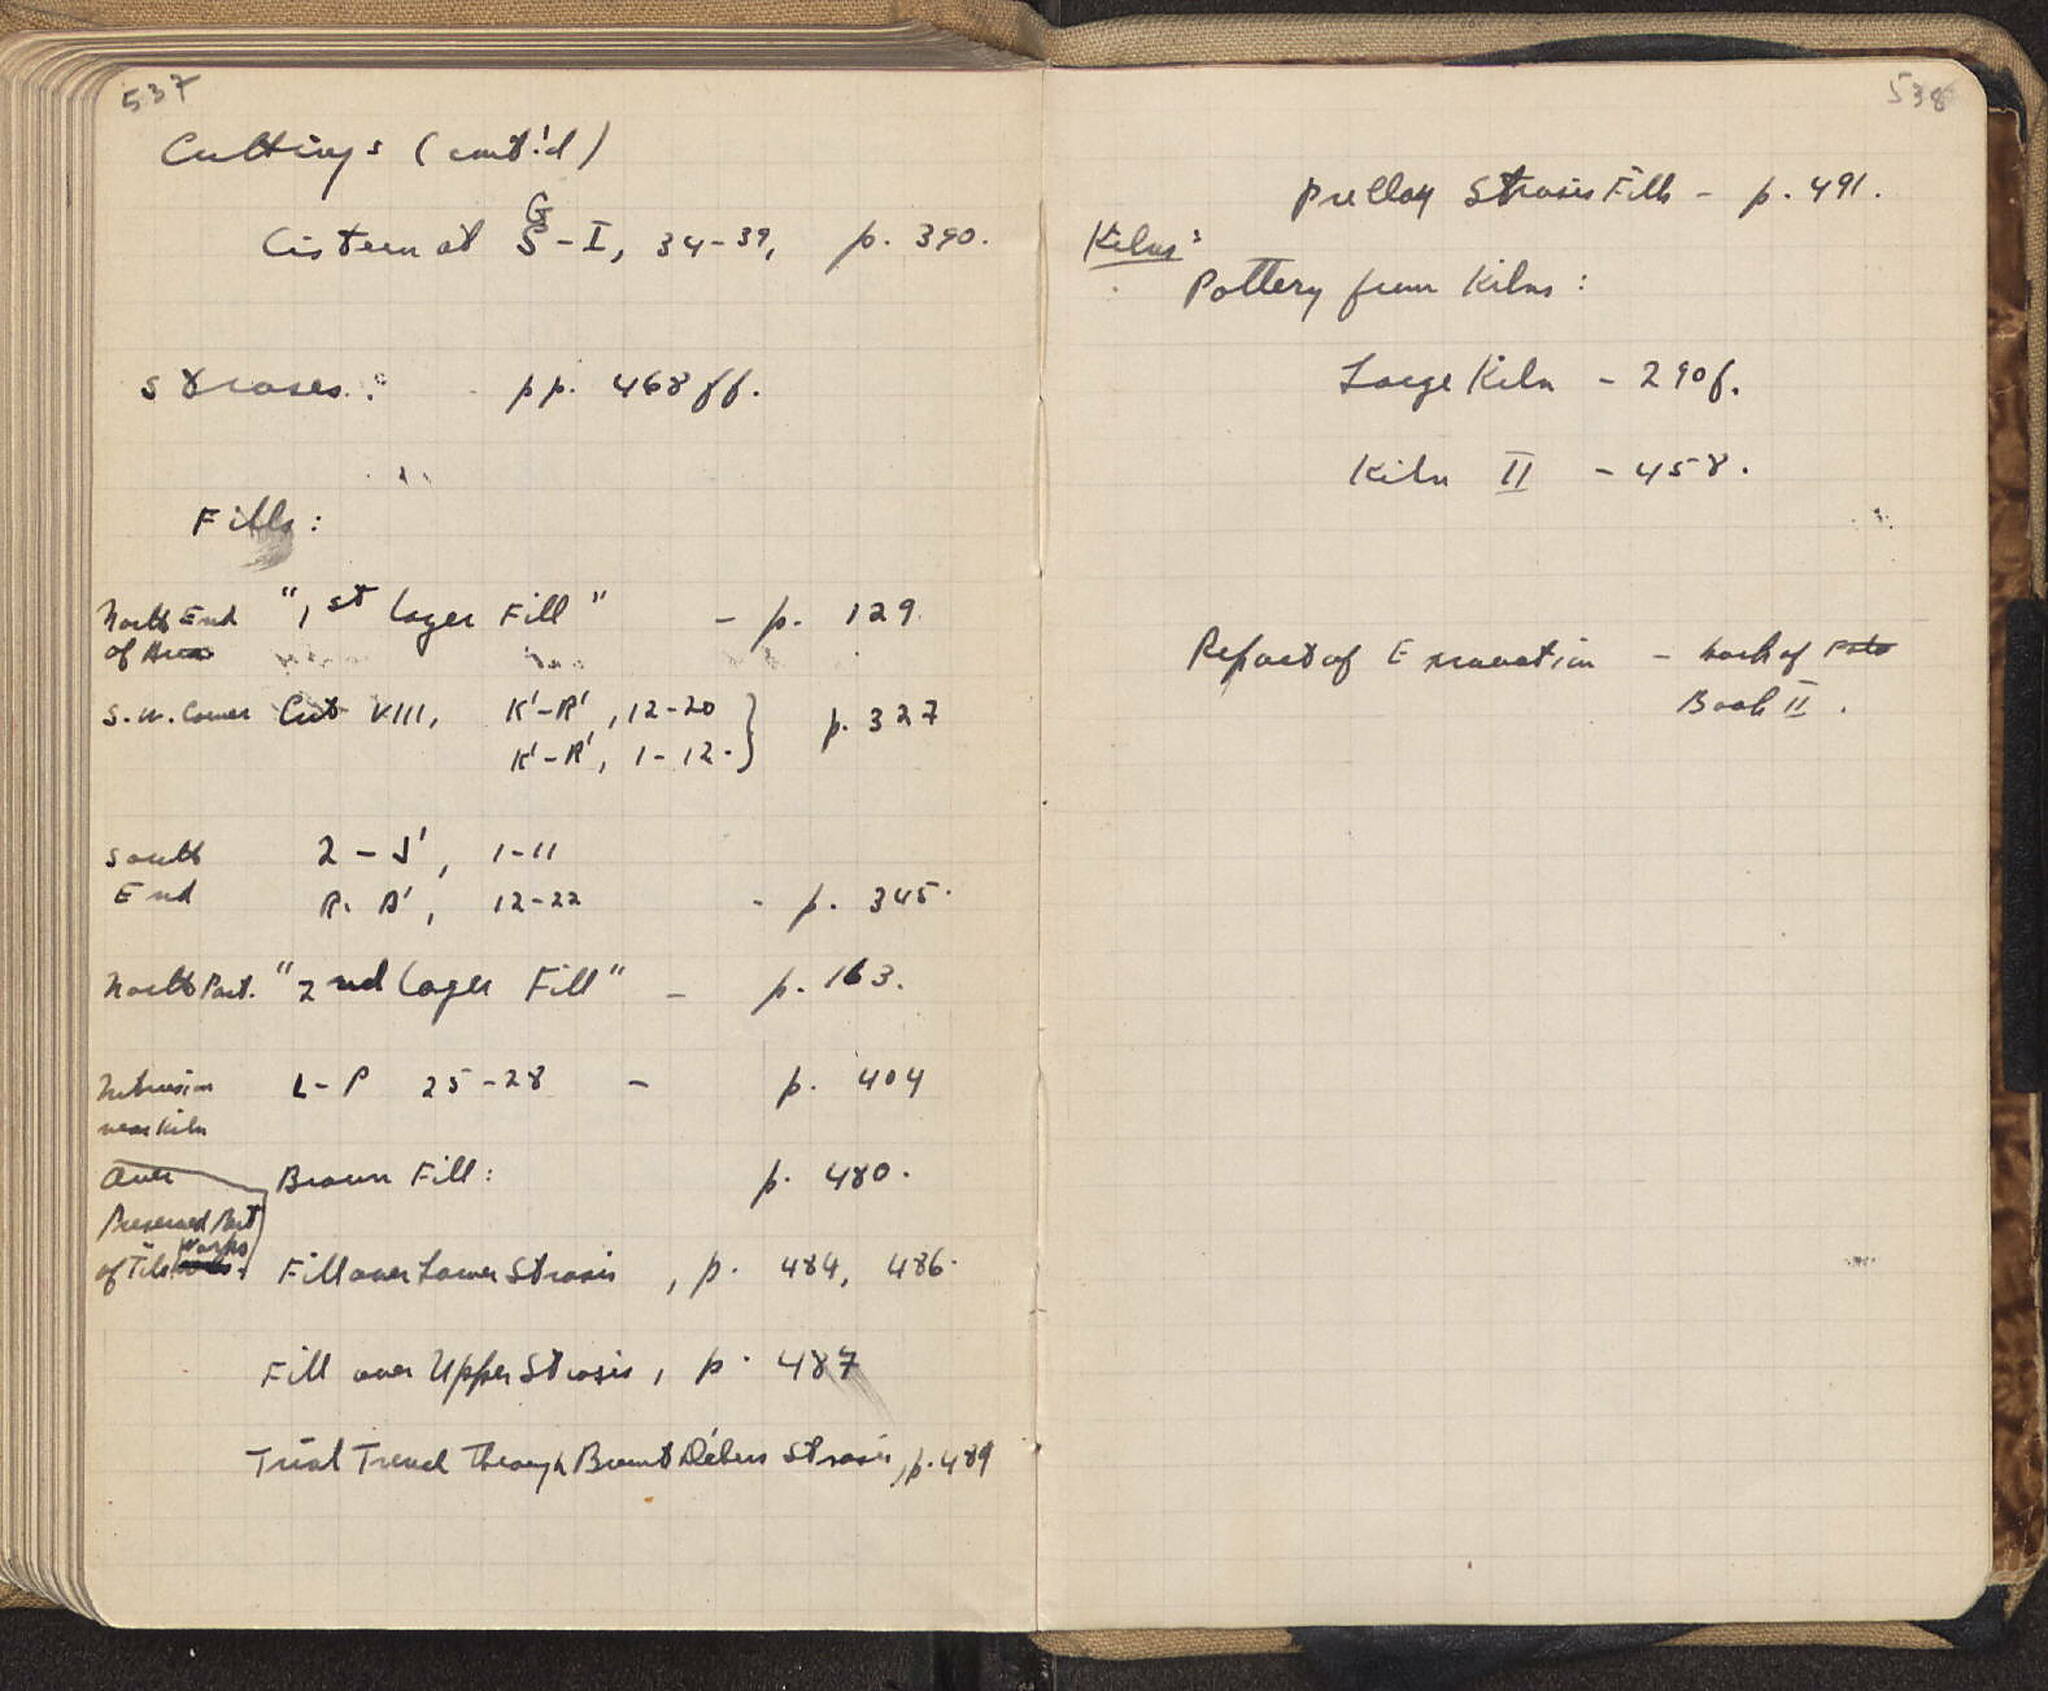 537
Cuttings (cont'd)
Cistern at G-I, 34-39, p. 390.
Stroses: pp. 468 ff.
Fills:
North End "1st Layer Fill" - p. 129.
of Area
S.W. Corner Cut VIII, K'-R', 12-20
K'-R', 1-12. } p. 327
South Z-J', 1-11
End R-A', 12-22 - p. 345.
North Part. "2nd Layer Fill" - p. 163.
Intrusion L-P 25-28 - p. 404
near Kiln
Over Brown Fill: p. 480.
Preserved Part
Works
of Tile Fill over Lower Strosis, p. 484, 486.
Fill over Upper Strosis, p. 487
Trial Trench Through Burnt Débris Strosis, p. 489
538
Pre Clay Strosis Fills - p. 491.
Kilns:
Pottery from Kilns:
Large Kiln - 290f.
Kiln II - 458.
Report of Excavation - back of
Book II.